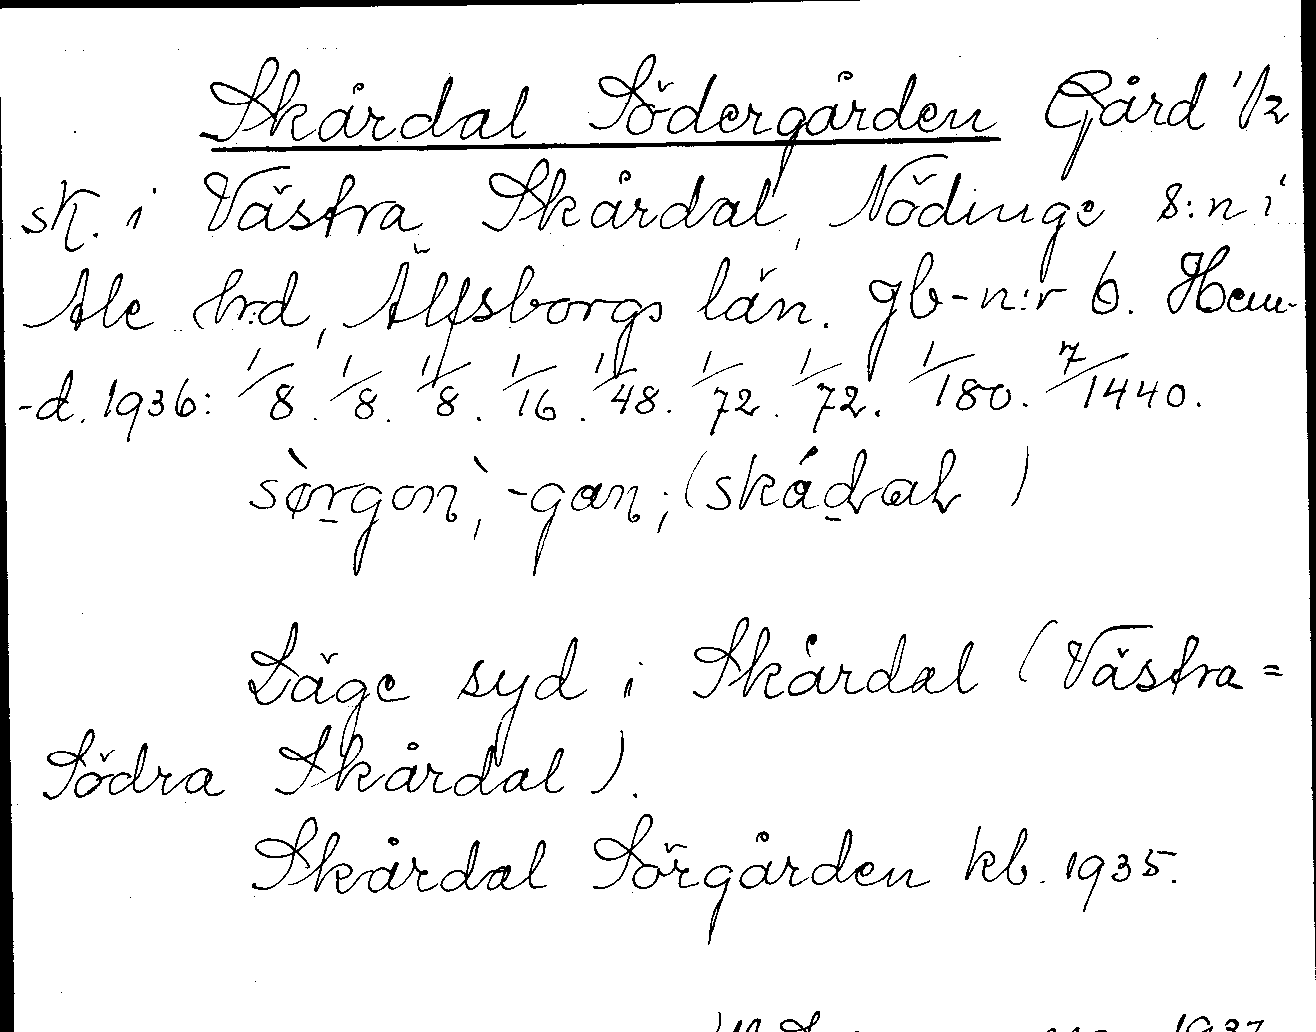 Skårdal Södergården Gård 1/2
sk. i Västra Skårdal, Nödinge s:n i
Ale hrd, Älfsborgs län. gb-n:r 6. Hem-
-d. 1936: 1/8. 1/8. 1/8. 1/16. 1/48. 1/72. 1/72. 1/180. 7/1440.
sørgon, -gan; (skådal)
Läge syd i Skårdal (Västra =
Södra Skårdal).
Skårdal Sörgården kb. 1935.
1937